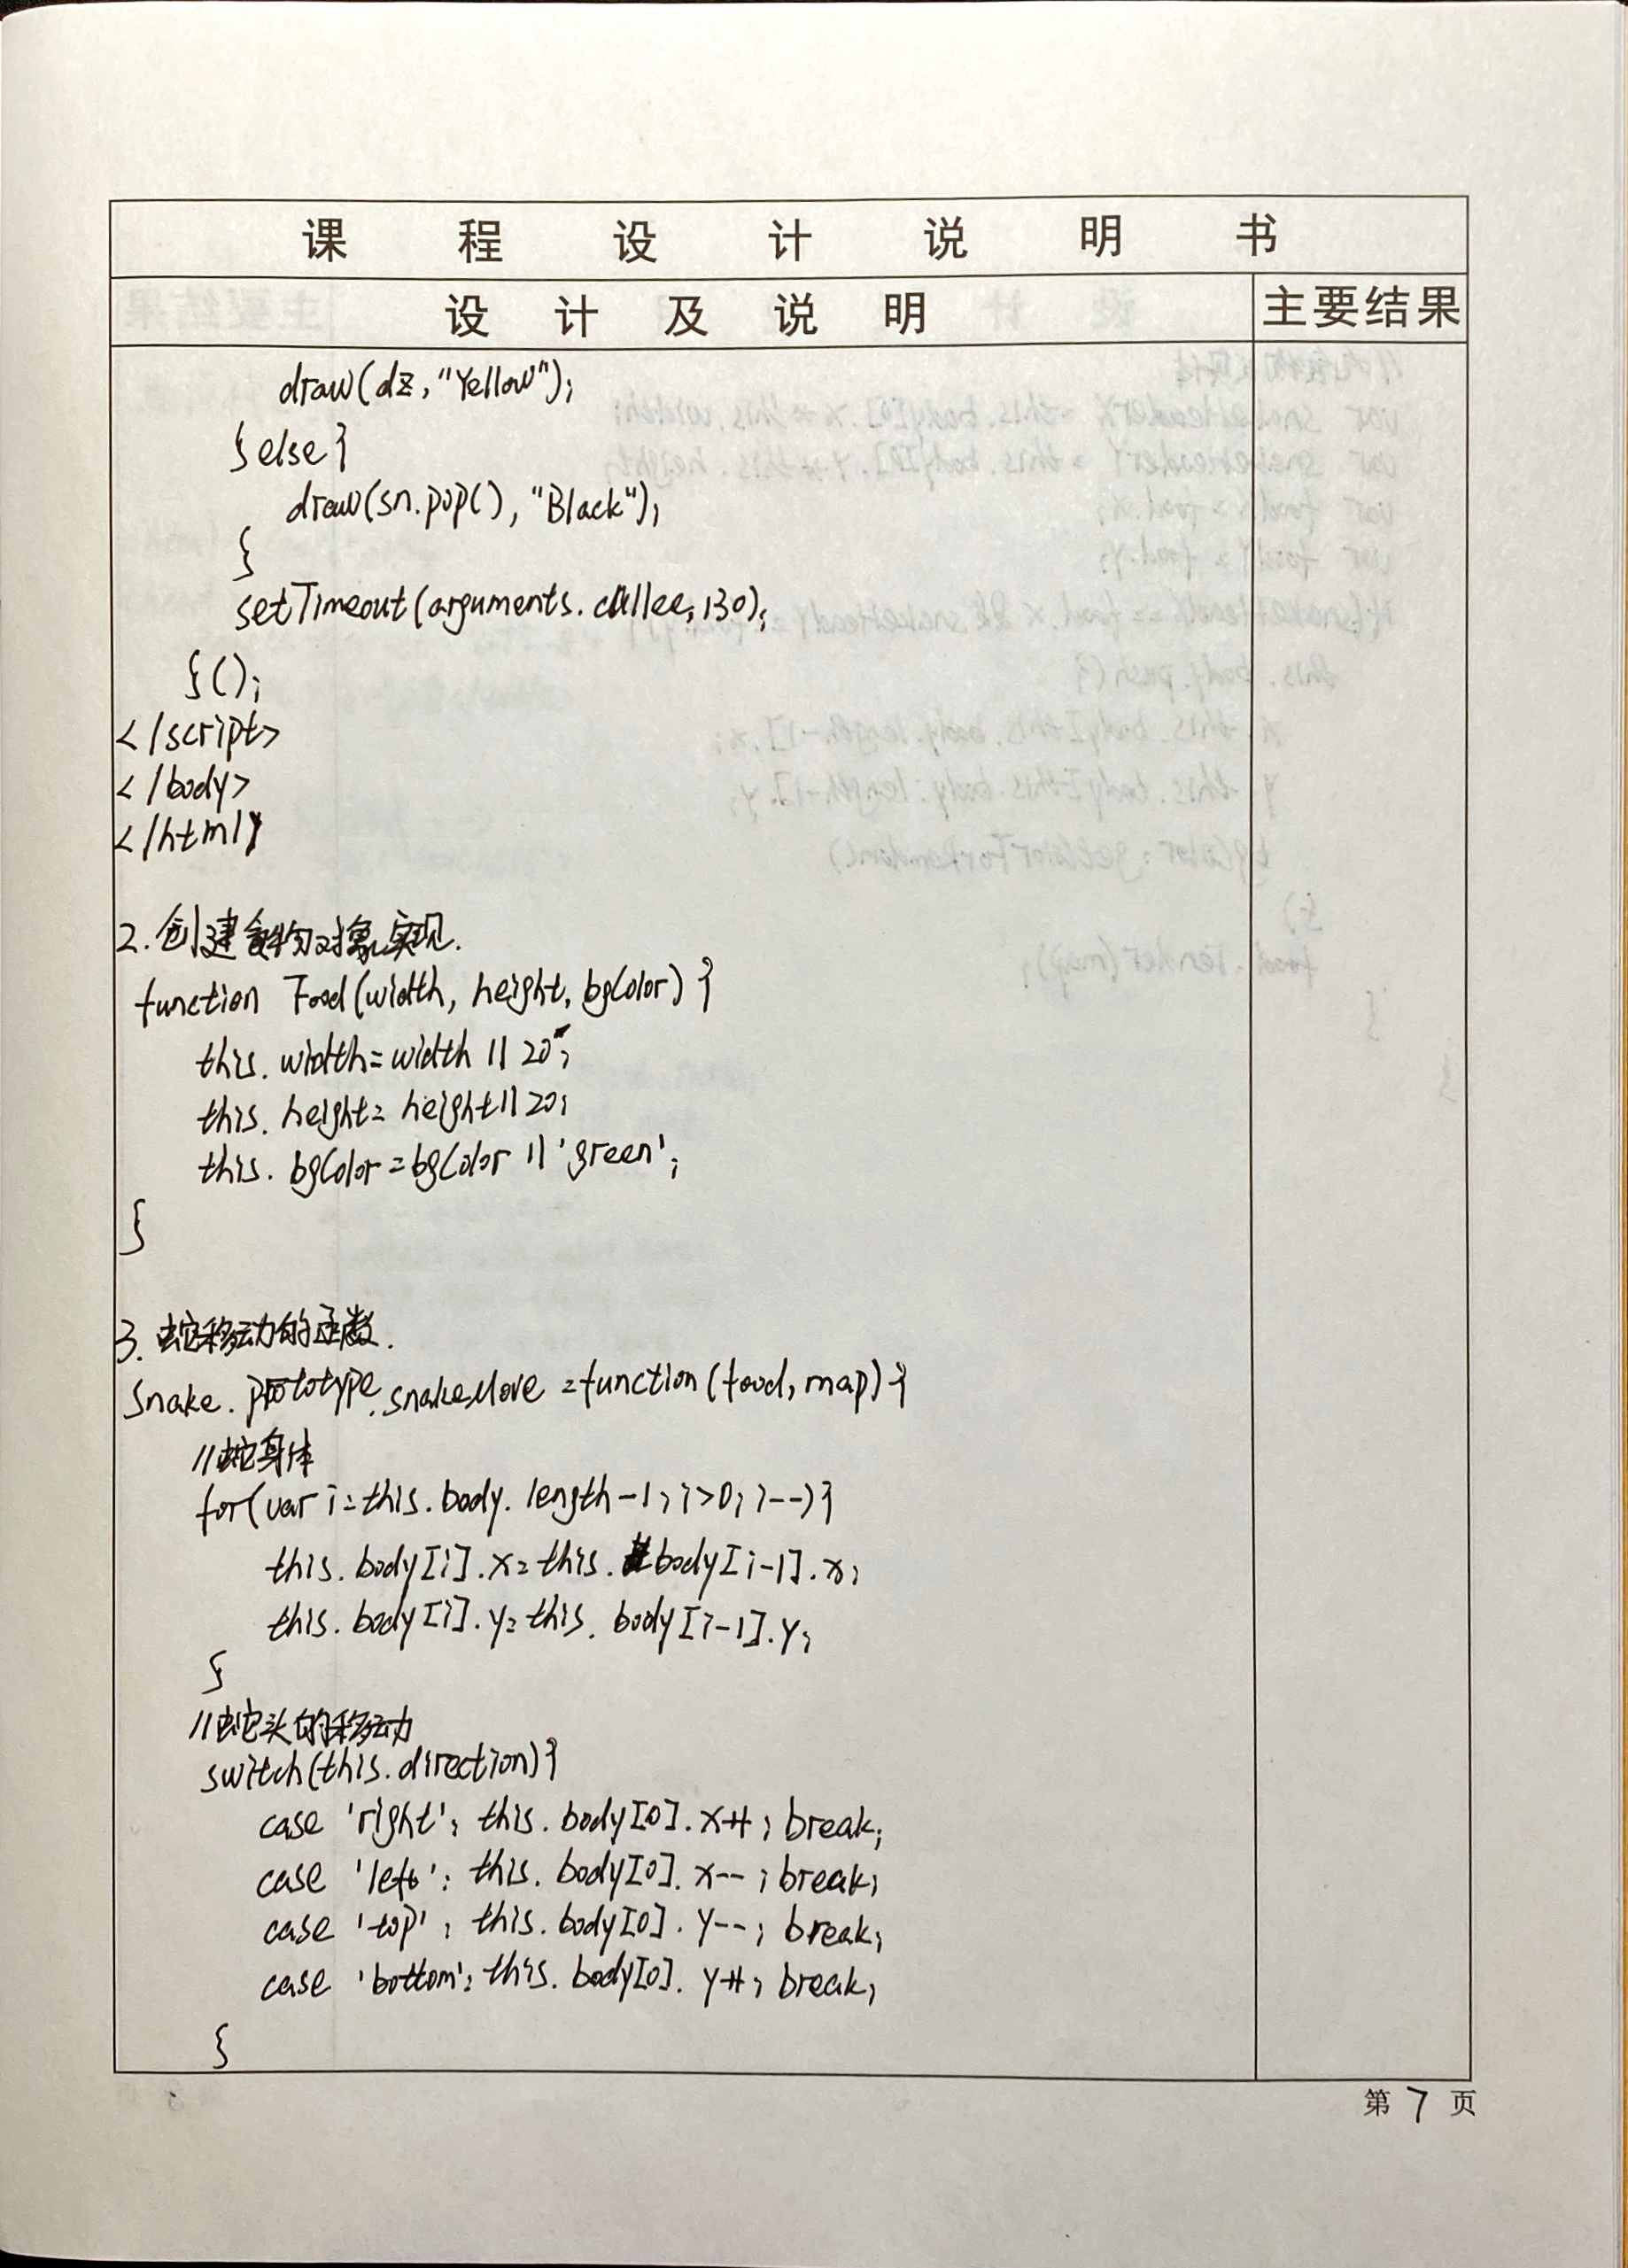 课程设计说明书
设计及说明 主要结果
draw(dz,"Yellow");
}else{
draw(sn.pop(),"Black");
}
setTimeout(arguments.callee,130);
}();
</script>
</body>
</html>
2.创建食物对象实现.
function Food(width, height, bgColor){
this.width=width || 20;
this.height=height||20;
this.bgColor=bgColor || 'green';
}
3.蛇移动的函数.
Snake.prototype.snakeMove=function(food,map){
//蛇身体
for(var i=this.body.length-1;i>0;i--){
this.body[i].x=this.body[i-1].x;
this.body[i].y=this.body[i-1].y;
}
//蛇头的移动
switch(this.direction){
case 'right': this.body[0].x++; break;
case 'left': this.body[0].x--; break;
case 'top': this.body[0].y--; break;
case 'bottom': this.body[0].y++; break;
}
第 7 页